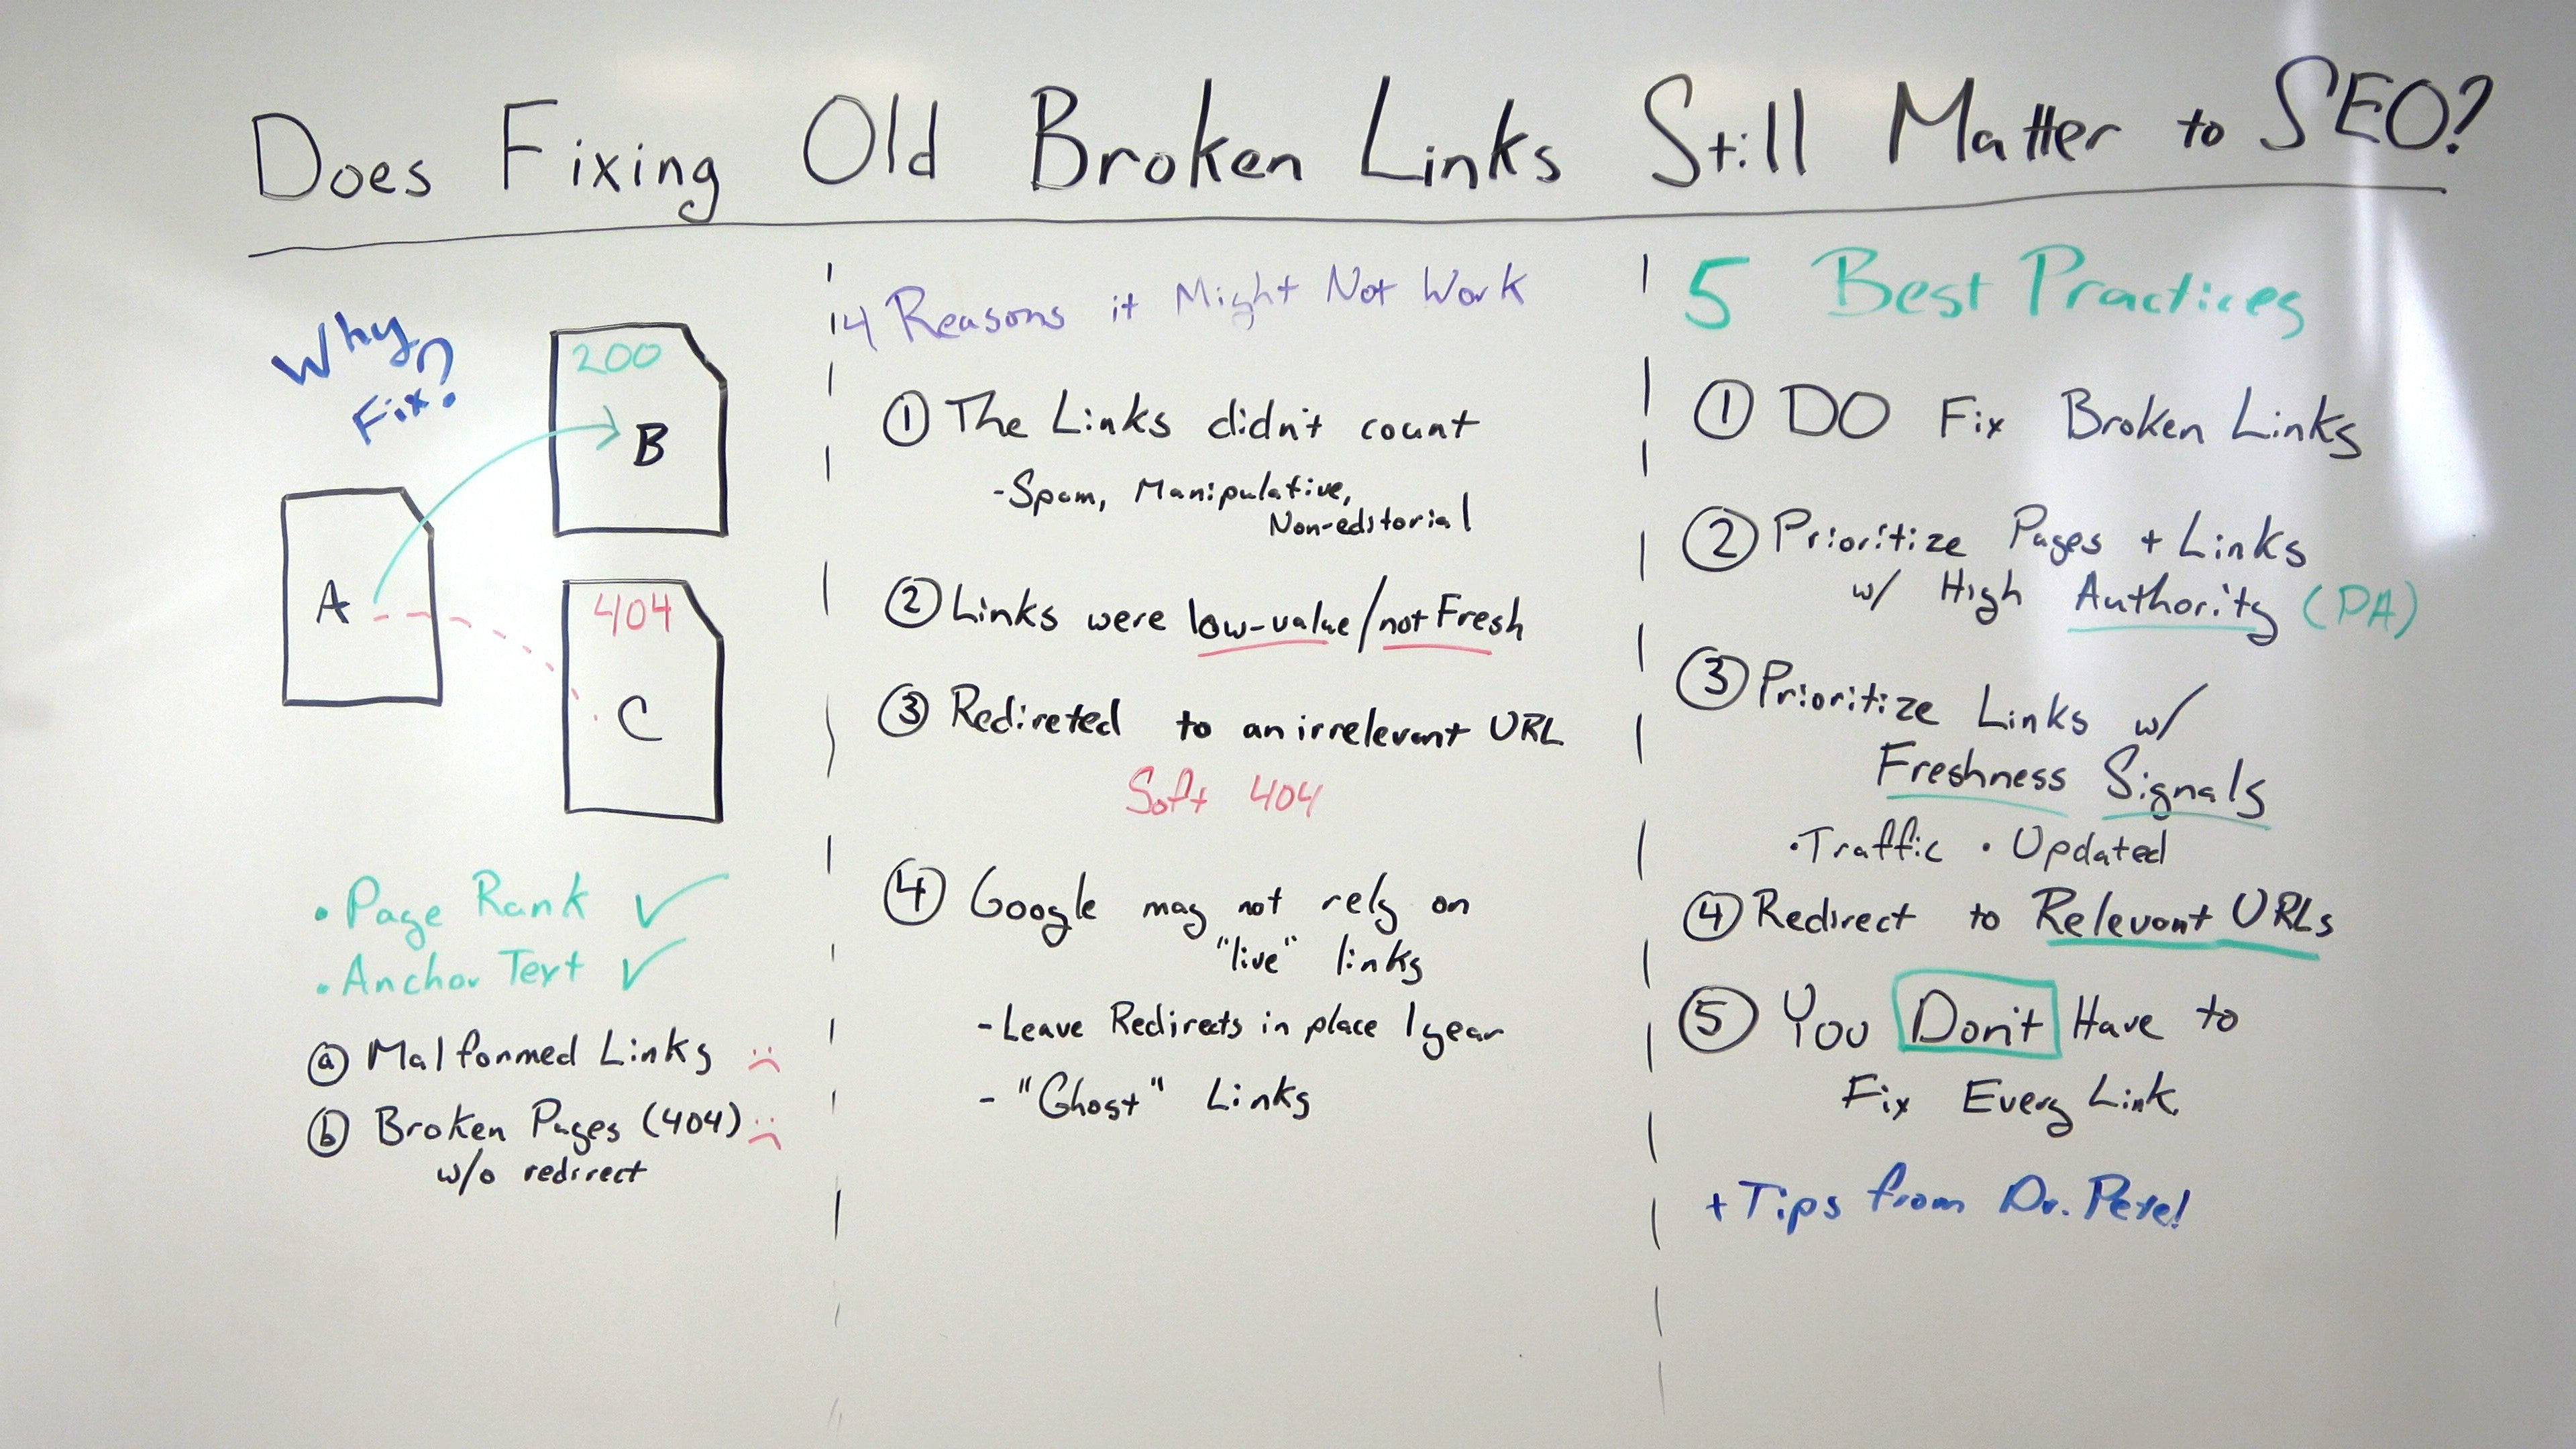 Does Fixing Old Broken Links Still Matter to SEO?
Why
Fix?
200
B
A
404
C
• Page Rank ✓
• Anchor Text ✓
ⓐ Malformed Links :(
ⓑ Broken Pages (404) :(
w/o redirect
4 Reasons it Might Not Work
① The Links didn't count
- Spam, Manipulative,
Non-editorial
② Links were low-value/not Fresh
③ Redireted to an irrelevant URL
Soft 404
④ Google may not rely on
"live" links
- Leave Redirects in place 1 year
- "Ghost" Links
5 Best Practices
① DO Fix Broken Links
② Prioritize Pages + Links
w/ High Authority (PA)
③ Prioritize Links w/
Freshness Signals
• Traffic • Updated
④ Redirect to Relevant URLs
⑤ You Don't Have to
Fix Every Link
+ Tips from Dr. Pete!